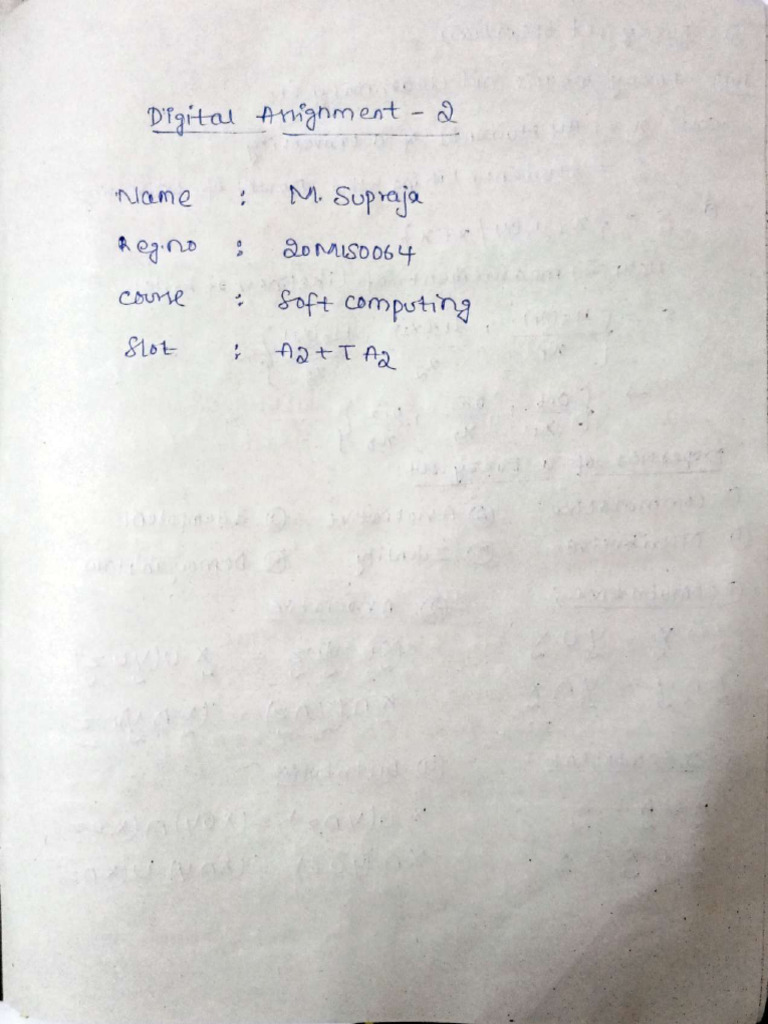 Digital Assignment - 2
Name : M. Supraja
Reg.no : 20MIS0064
course : Soft computing
Slot : A2 + TA2